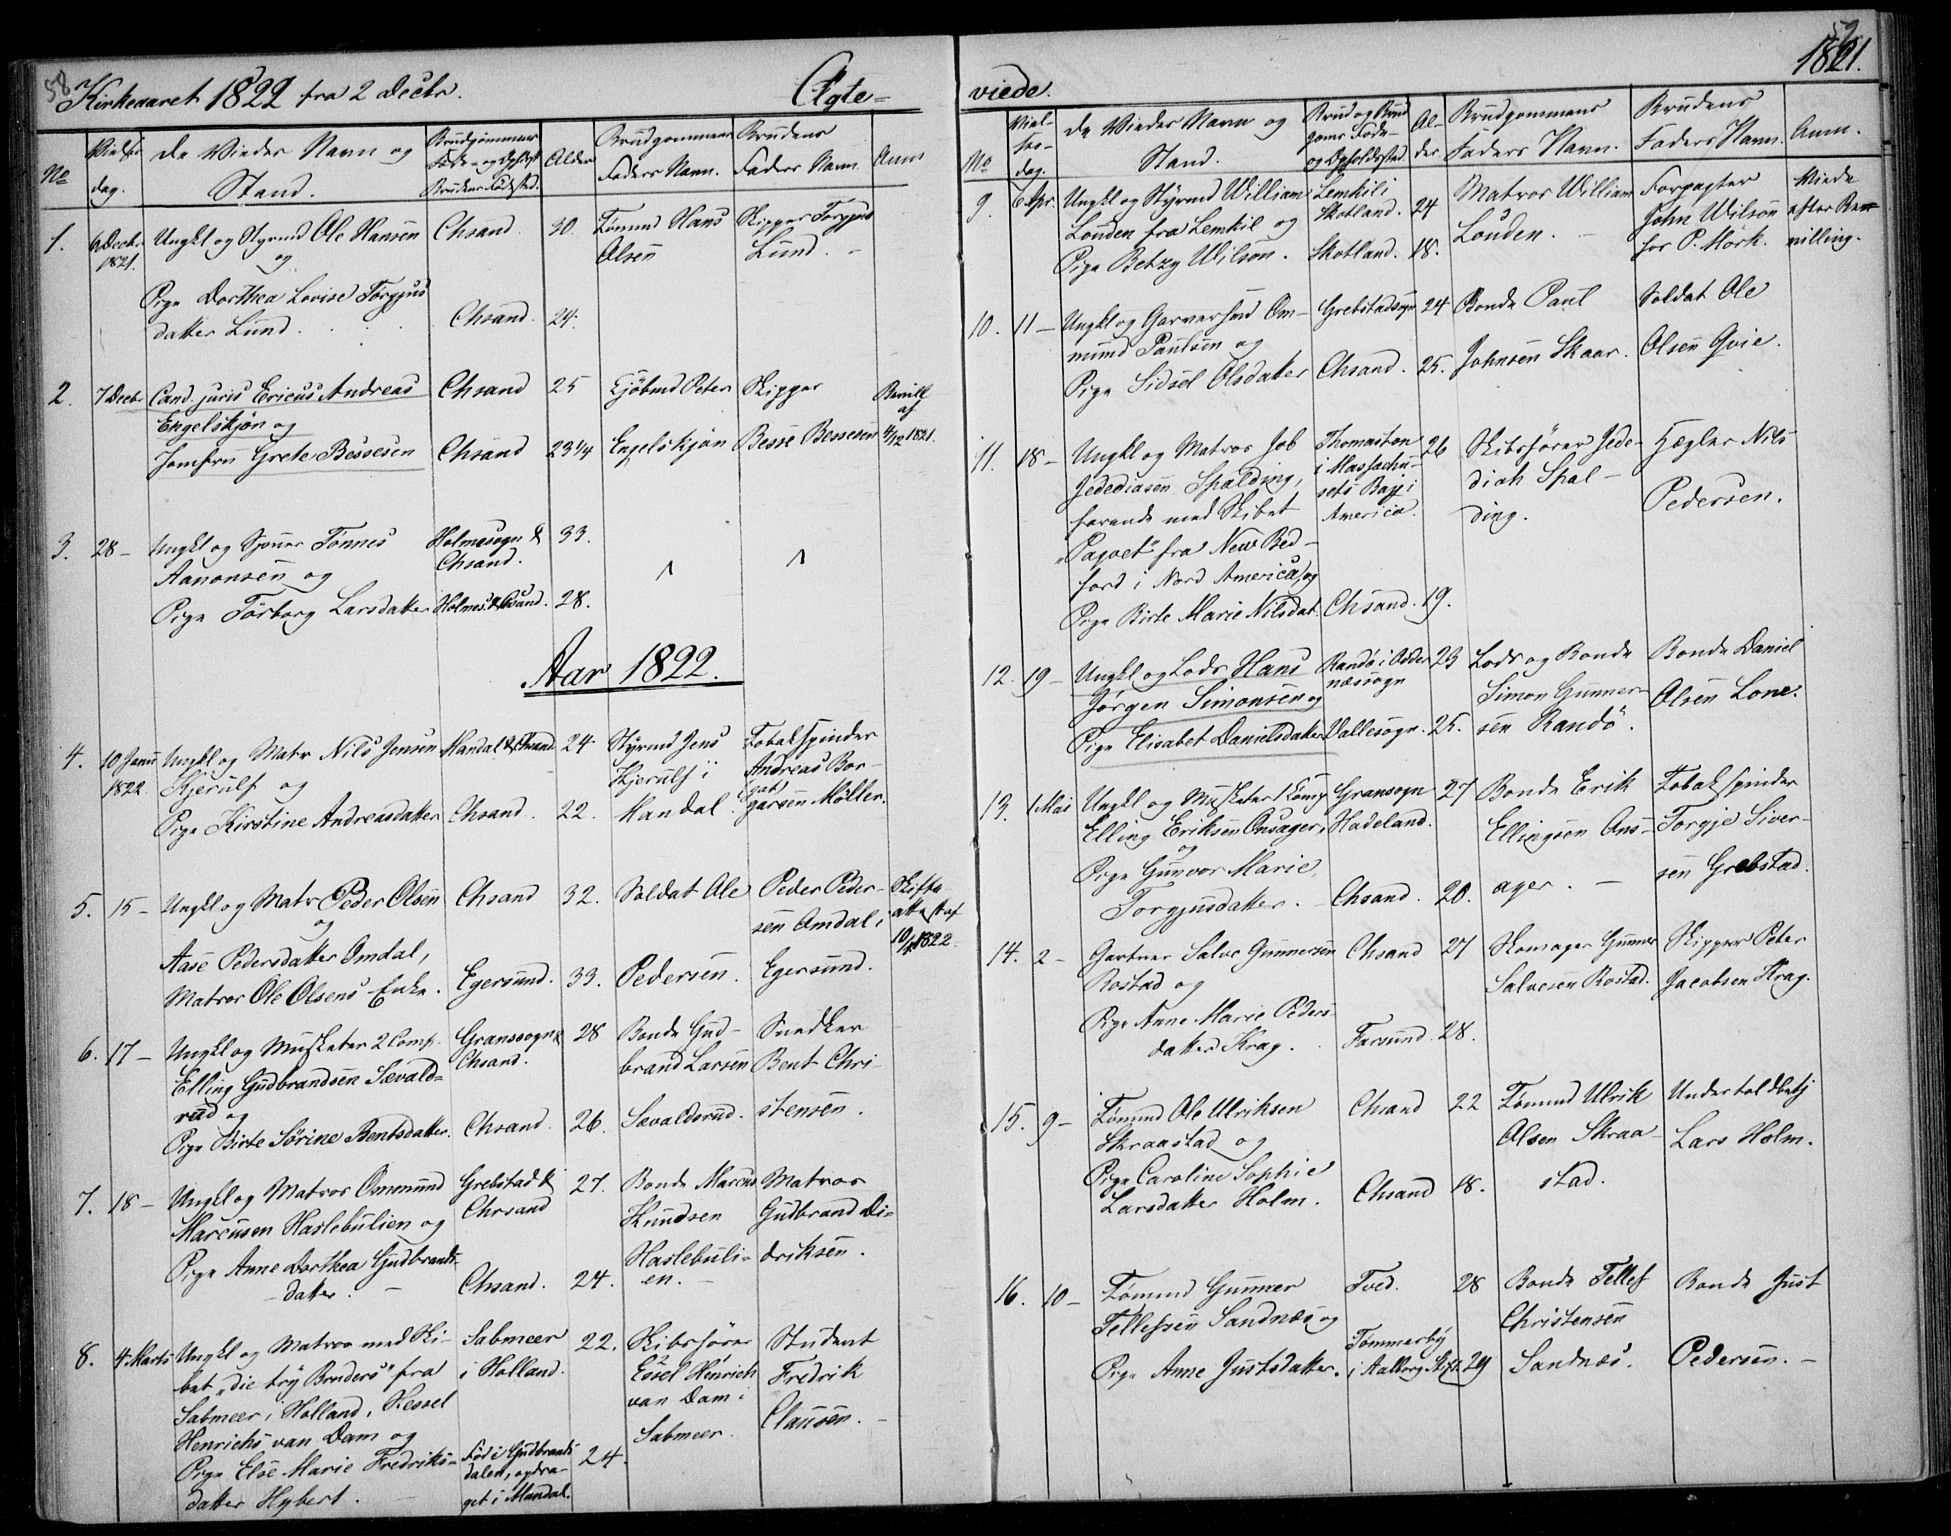 58
Kirkeaaret 1822 fra 2 Decbr.
Ægte=
No
Vielses
dag.
De Viedes Navn og
Stand.
Brudgommens
Føde- og Opholdst
Brudens Fødested.
Alder
Brudgommens
Faders Navn.
Brudens
Faders Navn.
Anm
1.
6 Decbr
1821.
Ungkl og Styrmd Ole Hansen
og
Pige Dorthea Lovise Torgjus
datter Lund.
Chsand.
Chsand.
30.
24.
Tømmd Hans
Olsen
Skipper Torgjus
Lund. –
2.
7 Decbr
Cand. juris Ericus Andreas
Engelskjøn og
Jomfru Grete Bessesen
Chsand
Chsand
25
23 1/4
Kjøbmd Peter
Engelskjøn
Skipper
Besse Bessesen
Bevill
af
4/12 1821.
3.
28 –
Ungkl og Tjener Tønnes
Aanonsen og
Pige Torborg Larsdatter
Holmesogn &
Chsand.
Holmes & Chsand.
33.
28.
Aar 1822.
4.
10 Janu
1822
Ungkl og Matr Nils Jensen
Kjerulf og
Pige Kirstine Andreasdatter
Mandal & Chsand
Chsand.
24.
22.
Styrmd Jens
Kjerulf i
Mandal.
Tobakspinder
Andreas Bor-
garsen Møller.
5.
15 –
Ungkl og Matr Peder Olsen
og
Aase Pedersdatter Omdal,
Matros Ole Olsens Enke.
Chsand
Egersund.
32.
33.
Soldat Ole
Pedersen.
Peder Peder-
sen Omdal i
Egersund.
Skifte
attest af
10/1 1822.
6.
17 –
Ungkl og Musketer 2 Comp.
Elling Gudbrandsen Sævald-
rud og
Pige Birte Sørine Bentsdatter.
Gransogn &
Chsand.
Chsand.
28
26.
Bonde Gud-
brand Larsen
Sævaldsrud.
Snedker
Bent Chri-
stensen.
7.
18 –
Ungkl og Matros Ommund
Marcusen Haslebulien og
Pige Anne Dorthea Gudbrands-
datter. –
Grebstad &
Chrsand
Chsand.
27.
24.
Bonde Marcus
Knudsen
Haslebuli-
en. –
Matros
Gudbrand Di-
driksen.
8.
4. Marts
Ungkl og Matros med Ski-
bet „die try Bruders" fra
Sabmeer i Holland, Hessel
Henrichs van Dam og
Pige Else Marie Fredriks-
datter Hybert. –
Sabmeer
i Holland.
Fød i Gudbrands
dalen, opdra-
get i Mandal.
22.
24.
Skibsfører
Essel Henrich
van Dam i
Sabmeer.
Student
Fredrik
Clausen. –
viede.
1821.
No
Viel-
ses-
dag.
De Viedes Navn og
Stand.
Brud og Brud
goms Føde-
og Opholdssted
Al-
der
Brudgommens
Faders Navn.
Brudens
Faders Navn.
Anm.
9.
6 Apr.
Ungkl og Styrmd William
Louden fra Lemkil og
Pige Betzy Wilson.
Lemkil i
Skotland.
Skotland.
24
18.
Matros William
Louden. –
Forpagter
John Wilson
for P. Mørk.
Viede
efter Be-
villing.
10.
11 –
Ungkl og Garversvend Om-
mund Paulsen og
Pige Sidsel Olsdatter
Grebstadsogn
Chsand.
24
25.
Bonde Paul
Johnsen Skaar.
Soldat Ole
Olsen Gvie.
11.
18 –
Ungkl og Matros Job
Jedediasen Spalding,
farende med Skibet
„Paqvet" fra New Bed-
ford i Nord America, og
Pige Birte Marie Nilsdat.
Thomaston
i Massachu-
sets Bay i
America.
Chsand.
26
19.
Skibsfører Jede-
diah Spal-
ding.
Hægler Nils
Pedersen.
12.
19 –
Ungkl og Lods Hans
Jørgen Simonsen og
Pige Elisabet Danielsdatter
Randø i Odder
næssogn
Vallesogn.
23
25.
Lods og Bonde
Simon Gunner-
sen Randø.
Bonde Daniel
Olsen Lone.
13.
1 Mai
Ungkl og Musketer 1 Comp
Elling Eriksen Onsager,
og
Pige Gunvor Marie
Torgjusdatter. –
Gransogn
Hadeland.
Chsand.
27
20.
Bonde Erik
Ellingsen Ons-
ager. –
Tobakspinder
Torgje Siver-
sen Grebstad.
14.
2 –
Gartner Salve Gunnersen
Rostad og
Pige Anne Marie Peders-
datter Krag.
Chsand
Farsund.
27
28.
Skomager Gunner
Salvesen Rostad.
Skipper Peter
Jacobsen Krag.
15.
9 –
Tømmd Ole Ulriksen
Skraastad og
Pige Caroline Sophie
Larsdatter Holm.
Chsand
Chsand
22
18.
Tømmd Ulrik
Olsen Skraa-
stad.
Undertoldbetj
Lars Holm.
16.
10 –
Tømmd Gunner
Tellefsen Sandnæs og
Pige Anne Justsdatter.
Tved.
Tømmerby
i Aalborg Stift
28
29
Bonde Tellef
Christensen
Sandnæs.
Bonde Just
Pedersen. –